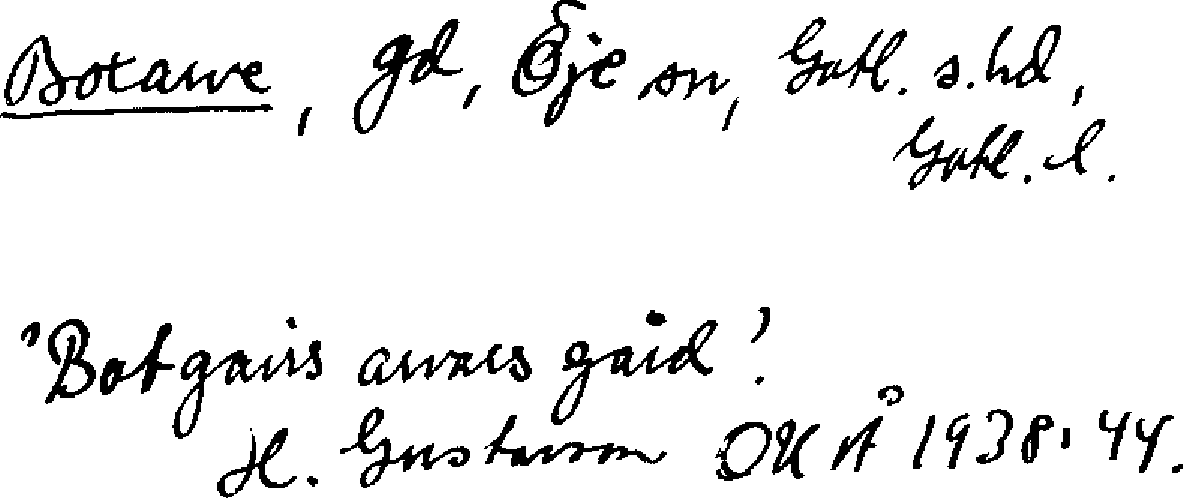 Botarve, gd, Öje sn, Gotl. s. hd,
Gotl. l.
"Botgairs arves gård".
H. Gustavson OUÅ 1938: 44.